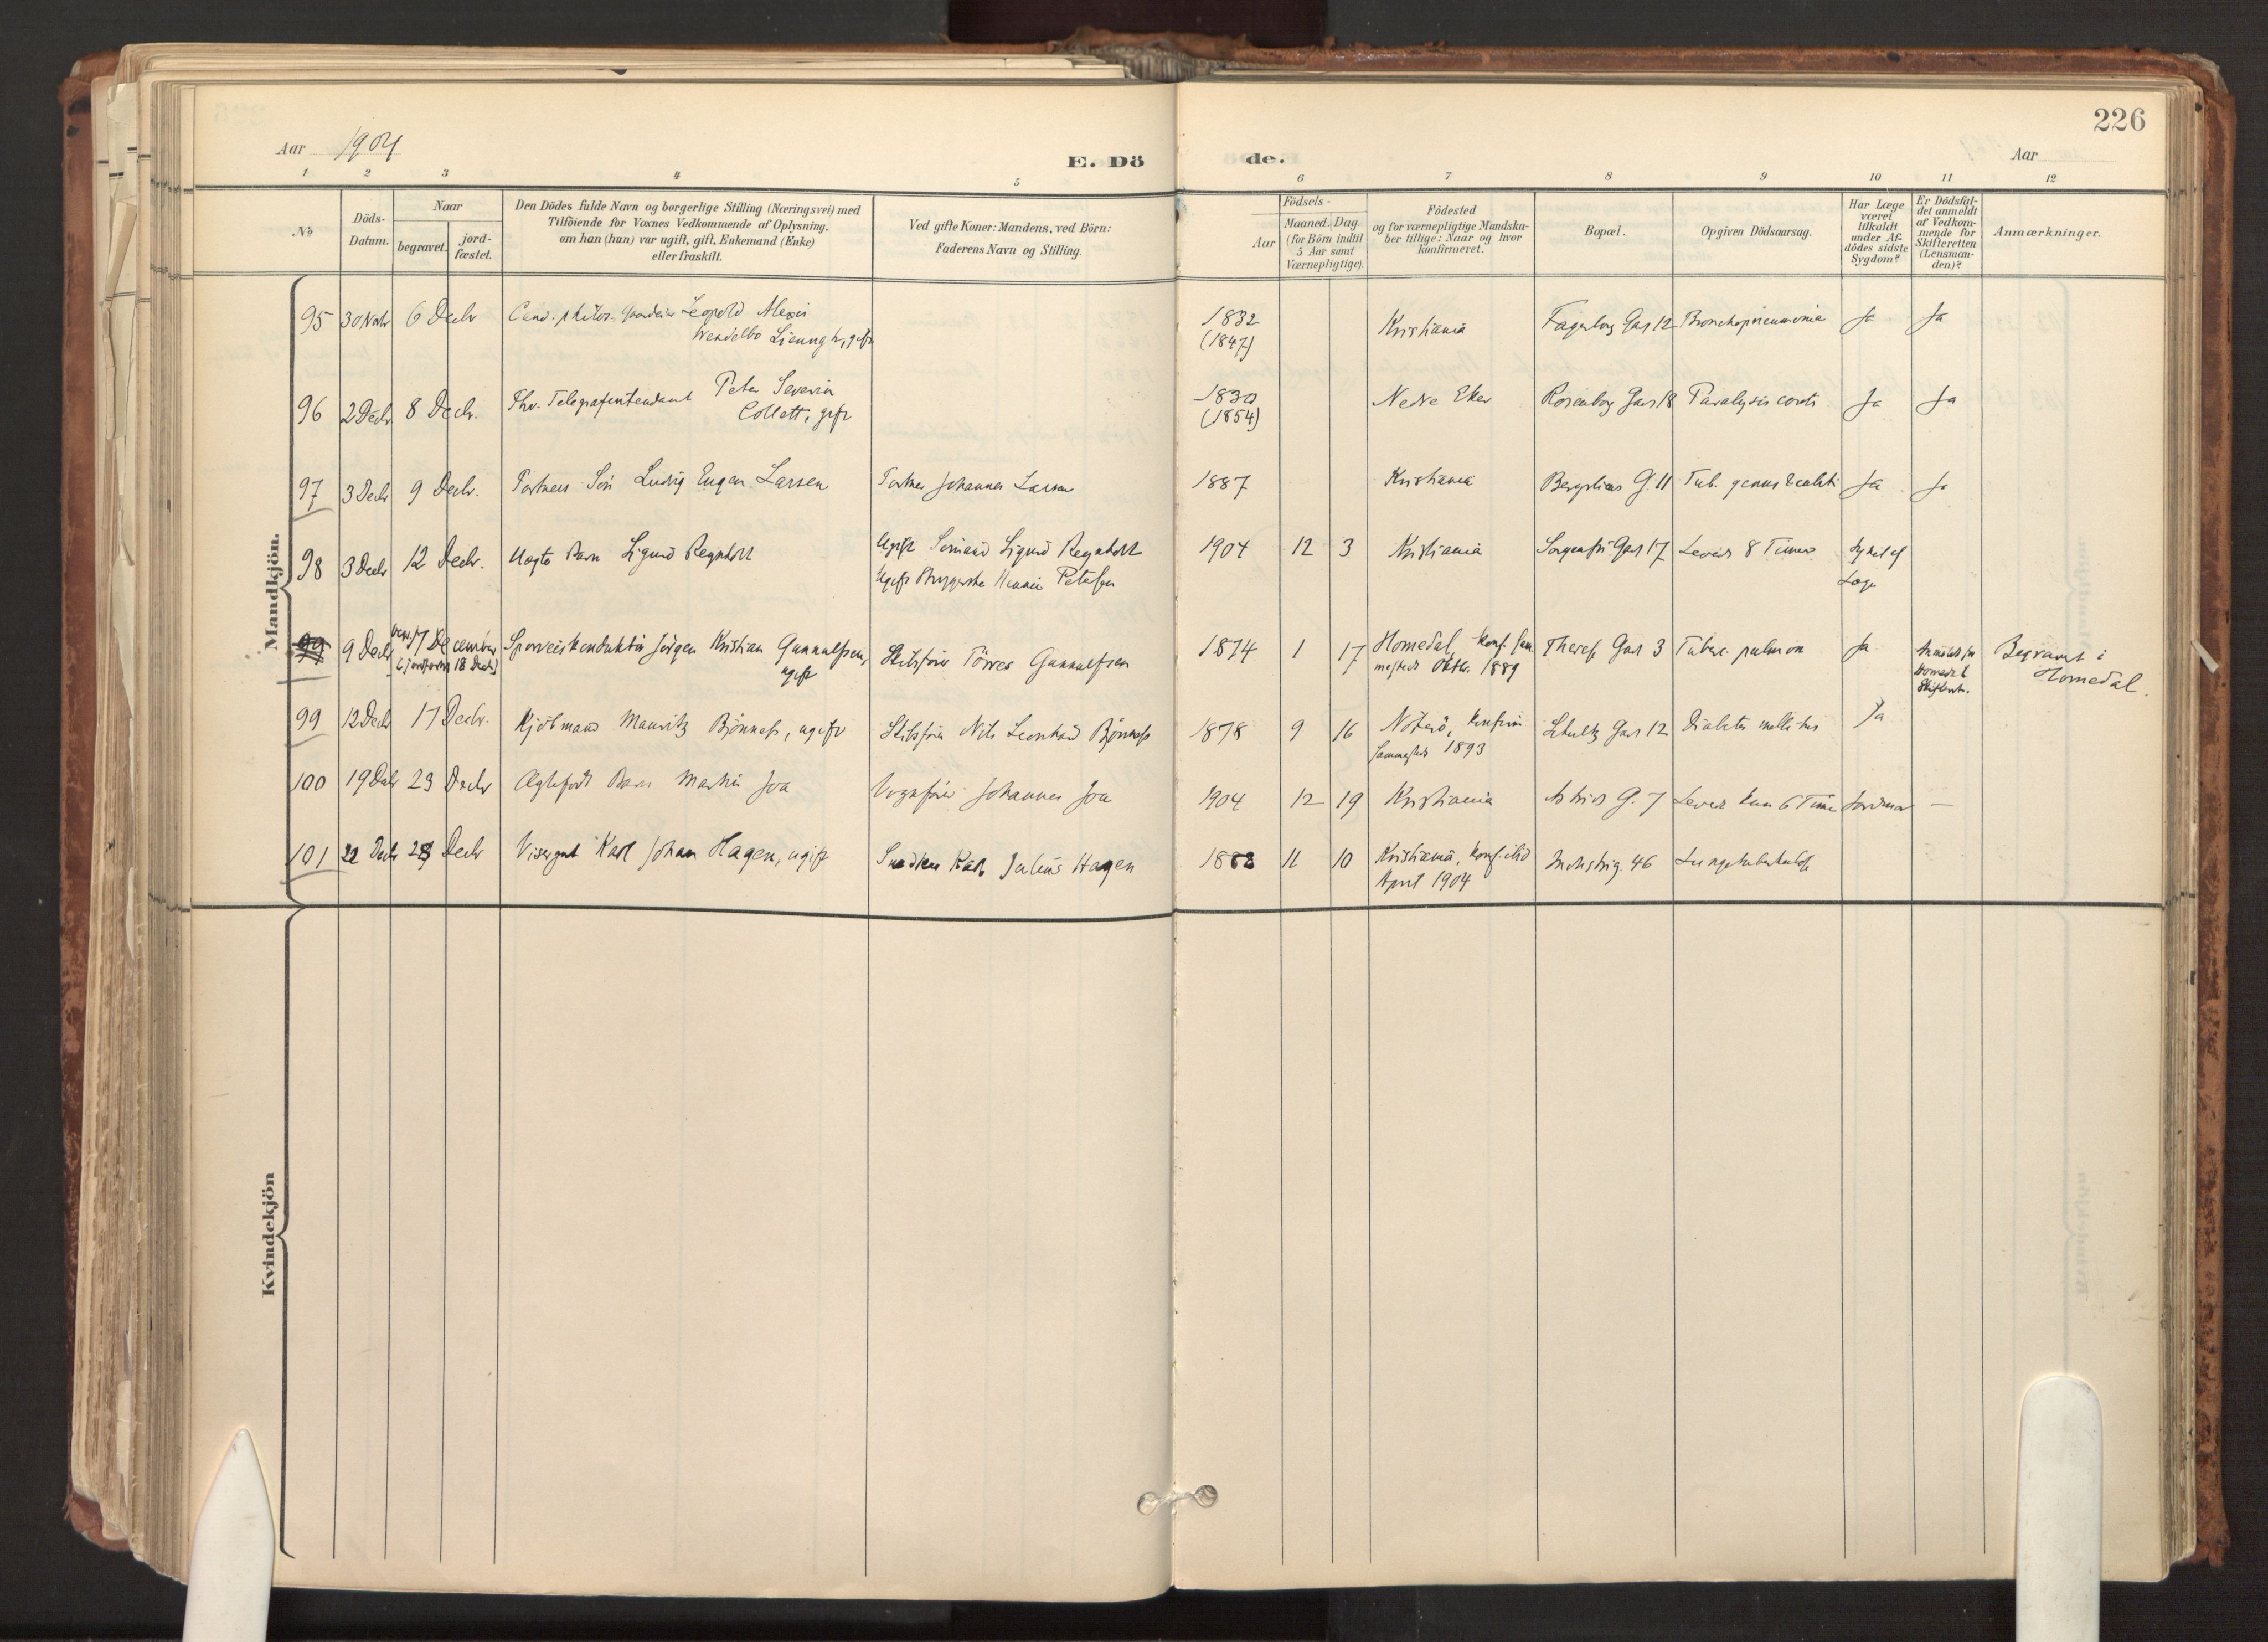 226
Aar 1904
E. Dö
de.
Aar
1 2 3 4 5 6 7 8 9 10 11 12
No
Döds-
Datum.
Naar
begravet.
jord-
fæstet.
Den Dödes fulde Navn og borgerlige Stilling (Næringsvei) med
Tilföiende for Voxnes Vedkommende af Oplysning,
om han (hun) var ugift, gift, Enkemand (Enke)
eller fraskilt.
Ved gifte Koner: Mandens, ved Börn:
Faderens Navn og Stilling.
Födsels-
Aar
Maaned. Dag.
(for Börn indtil
5 Aar samt
Værnepligtige).
Födested
og for værnepligtige Mandska-
ber tillige: Naar og hvor
konfirmeret.
Bopæl.
Opgiven Dödsaarsag.
Har Læge
været
tilkaldt
under Af-
dödes sidste
Sygdom?
Er Dödsfal-
det anmeldt
af Vedkom-
mende for
Skifteretten
(Lensman-
den)?
Anmærkninger.
Mandkjön.
95 30 Novbr 6 Decbr Cand. philos. Leopold Alexis
Wendelbo gift
1832
(1847)
Kristiania Fagerborg Gad 12 Bronchopneumonia Ja Ja
96 2 Decbr 8 Decbr. Fhv. Telegrafintendant Peter Severin
Collett, gift
1830
(1854)
Nedre Eker Rosenborg Gad 18 Paralysis cordis Ja Ja
97 3 Decbr 9 Decbr. Portners Sön Ludvig Eugen Larsen Portner Johannes Larsen 1887 Kristiania G. 11 Tub. genus Ja Ja
98 3 Decbr 12 Decbr. Uægte Barn Sigurd Ugift Sömand Sigurd
Ugift Petersen
1904 12 3 Kristiania Sorgenfri Gad 17 Levede 8 Timer
99 9 Decbr 17 December
(jordfæstet 18 Decbr)
Sporveiskonduktör Jörgen Kristian Gunnulfsen,
ugift
Skibsförer Törres Gunnulfsen 1874 1 17 Homedal, konf. sam-
mesteds Oktbr. 1889
Theres Gad 3 Tuberc. pulmon Ja
Homedal
Skifteret.
Begravet i
Homedal.
99 12 Decbr 17 Decbr. Kjöbmand Mauritz Bjönness, ugift Skibsförer Nils Leonhard Bjönness 1878 9 16 Nöterö, konfirm
sammesteds 1893
Schultz Gad 12 Diabetes mellitus Ja
100 19 Decbr 23 Decbr Ægtefödt Barn Martin Joa Vognförer Johannes Joa 1904 12 19 Kristiania Astrids G. 7 Levede kun 6 Timer Jordmor —
101 22 Decbr 28 Decbr Visergut Karl Johan Hagen, ugift Snedker Karl Julius Hagen 1888 11 10 Kristiania, konf.
April 1904
Industrig. 46 Lungetuberkulose
Kvindekjön